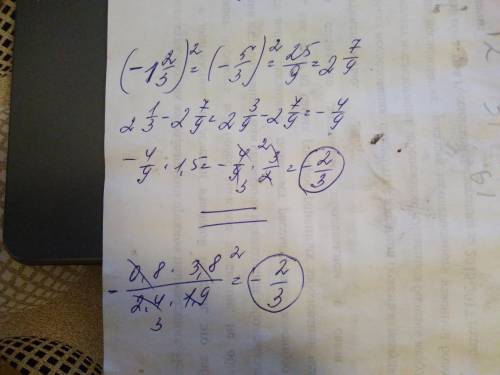 (-1 2/3)² = (-5/3)² = 25/9 = 2 7/9
2 1/3 - 2 7/9 = 2 3/9 - 2 7/9 = -4/9
-4/9 · 1,5 = -4/9 · 3/2 = -2/3
- (0,8 · 3,8)/(2,4 · 1,9) = -2/3